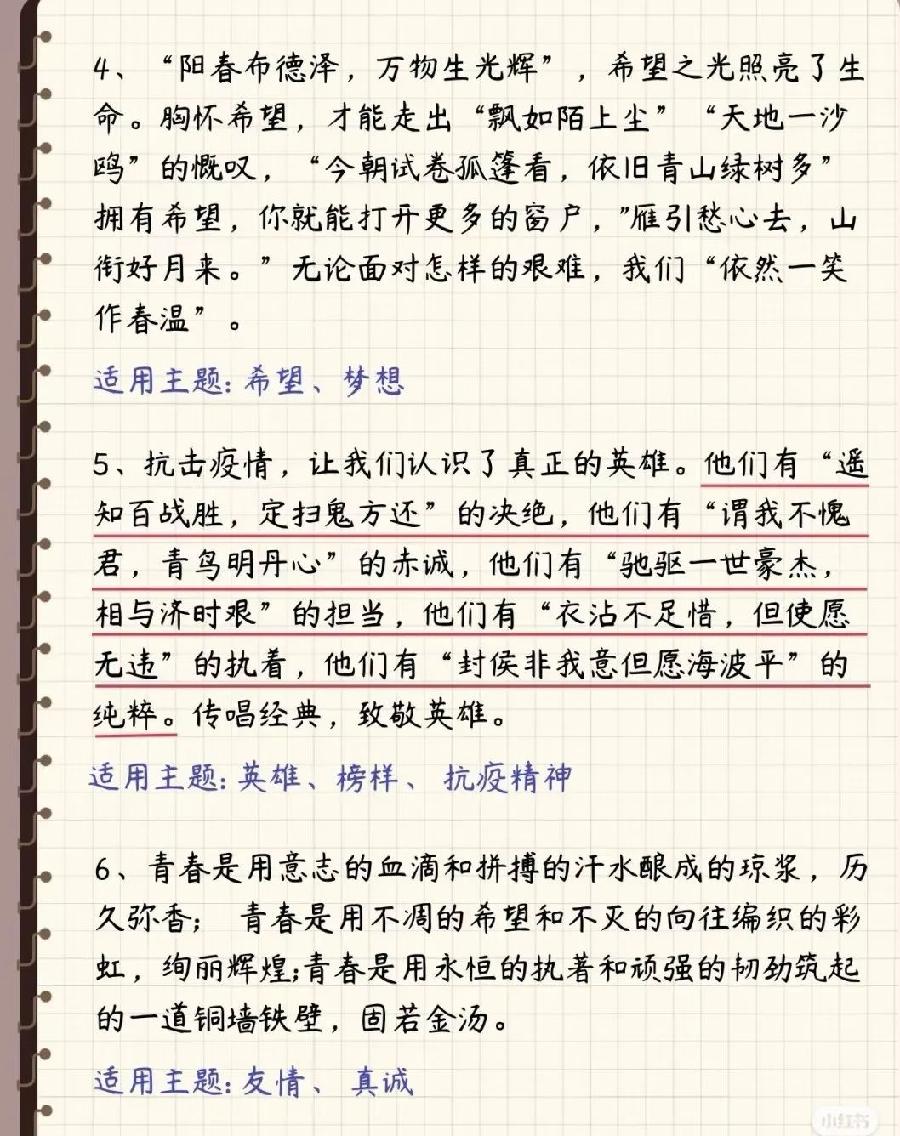 4、“阳春布德泽，万物生光辉”，希望之光照亮了生
命。胸怀希望，才能走出“飘如陌上尘”“天地一沙
鸥”的慨叹，“今朝试卷孤篷看，依旧青山绿树多”
拥有希望，你就能打开更多的窗户，”雁引愁心去，山
衔好月来。”无论面对怎样的艰难，我们“依然一笑
作春温”。
适用主题:希望、梦想
5、抗击疫情，让我们认识了真正的英雄。他们有“遥
知百战胜，定扫鬼方还”的决绝，他们有“谓我不愧
君，青鸟明丹心”的赤诚，他们有“驰驱一世豪杰，
相与济时艰”的担当，他们有“衣沾不足惜，但使愿
无违”的执着，他们有“封侯非我意但愿海波平”的
纯粹。传唱经典，致敬英雄。
适用主题:英雄、榜样、抗疫精神
6、青春是用意志的血滴和拼搏的汗水酿成的琼浆，历
久弥香；青春是用不凋的希望和不灭的向往编织的彩
虹，绚丽辉煌;青春是用永恒的执著和顽强的韧劲筑起
的一道铜墙铁壁，固若金汤。
适用主题:友情、真诚
小红书